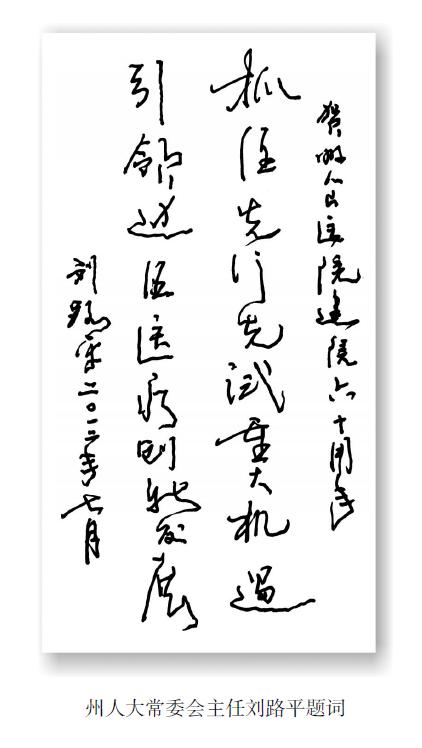 贺州人民医院建院六十周年
抓住先行先试重大机遇
引领边区医疗创新发展
刘路平二〇一三年七月
州人大常委会主任刘路平题词